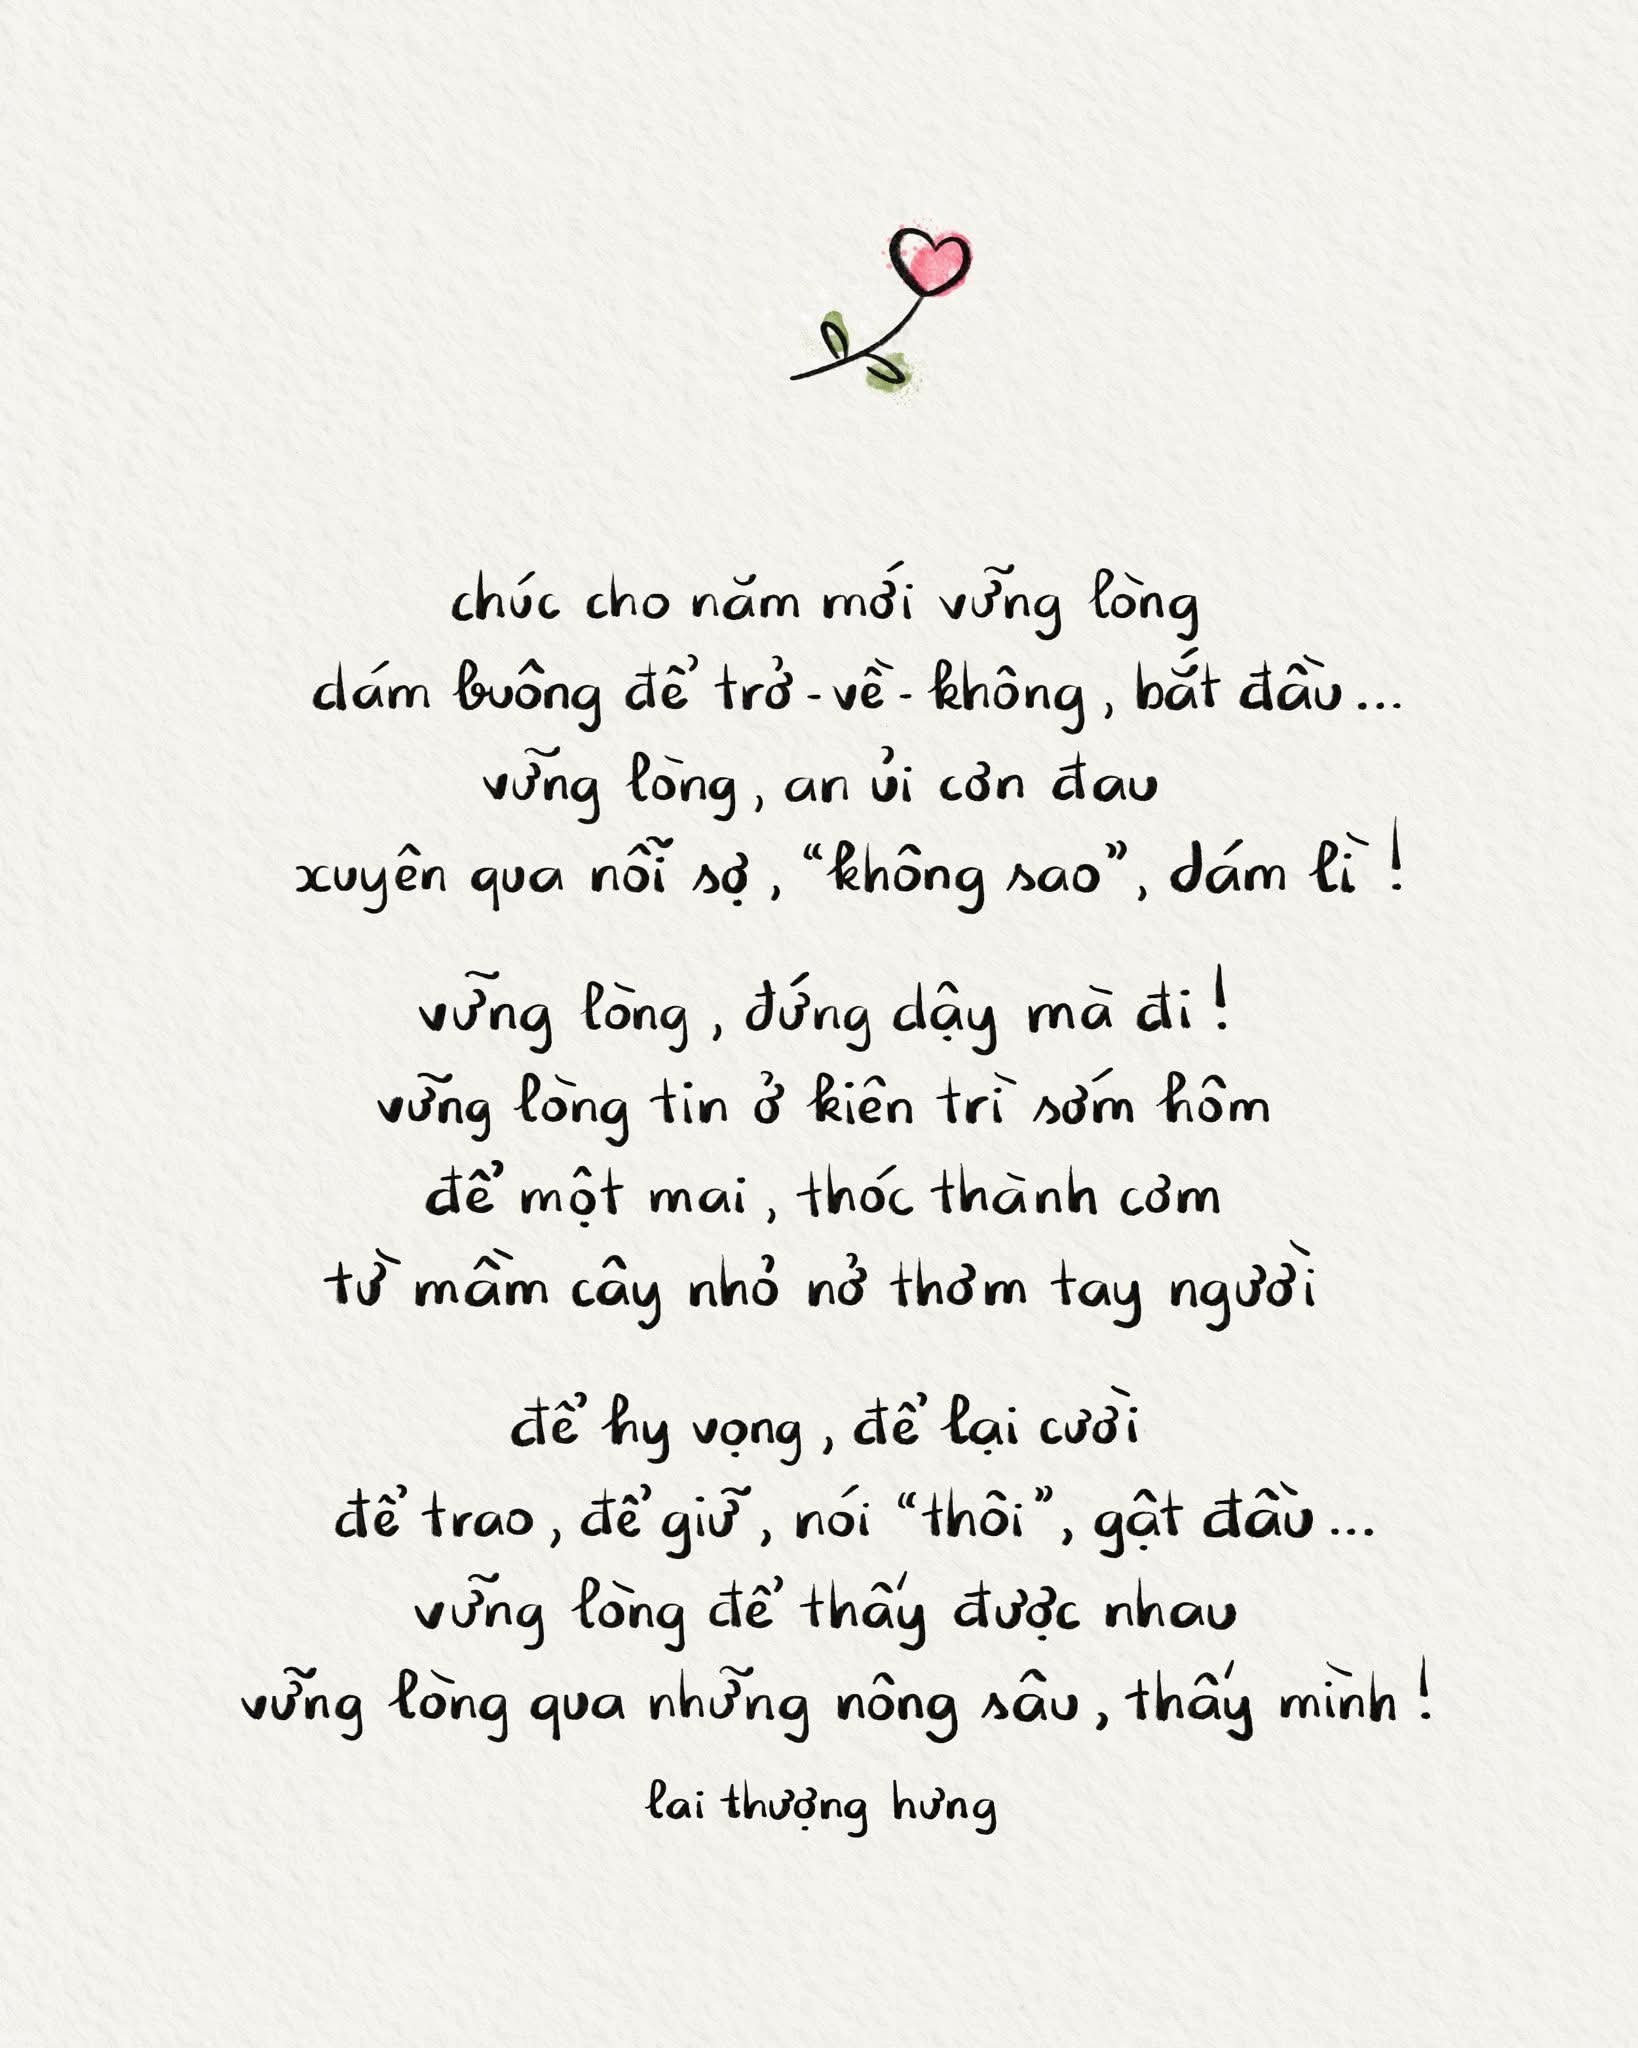 chúc cho năm mới vững lòng
dám buông để trở-về-không, bắt đầu...
vững lòng, an ủi cơn đau
xuyên qua nỗi sợ, “không sao”, dám lì!
vững lòng, đứng dậy mà đi!
vững lòng tin ở kiên trì sớm hôm
để một mai, thóc thành cơm
từ mầm cây nhỏ nở thơm tay người
để hy vọng, để lại cười
để trao, để giữ, nói “thôi”, gật đầu...
vững lòng để thấy được nhau
vững lòng qua những nông sâu, thấy mình!
lai thượng hưng